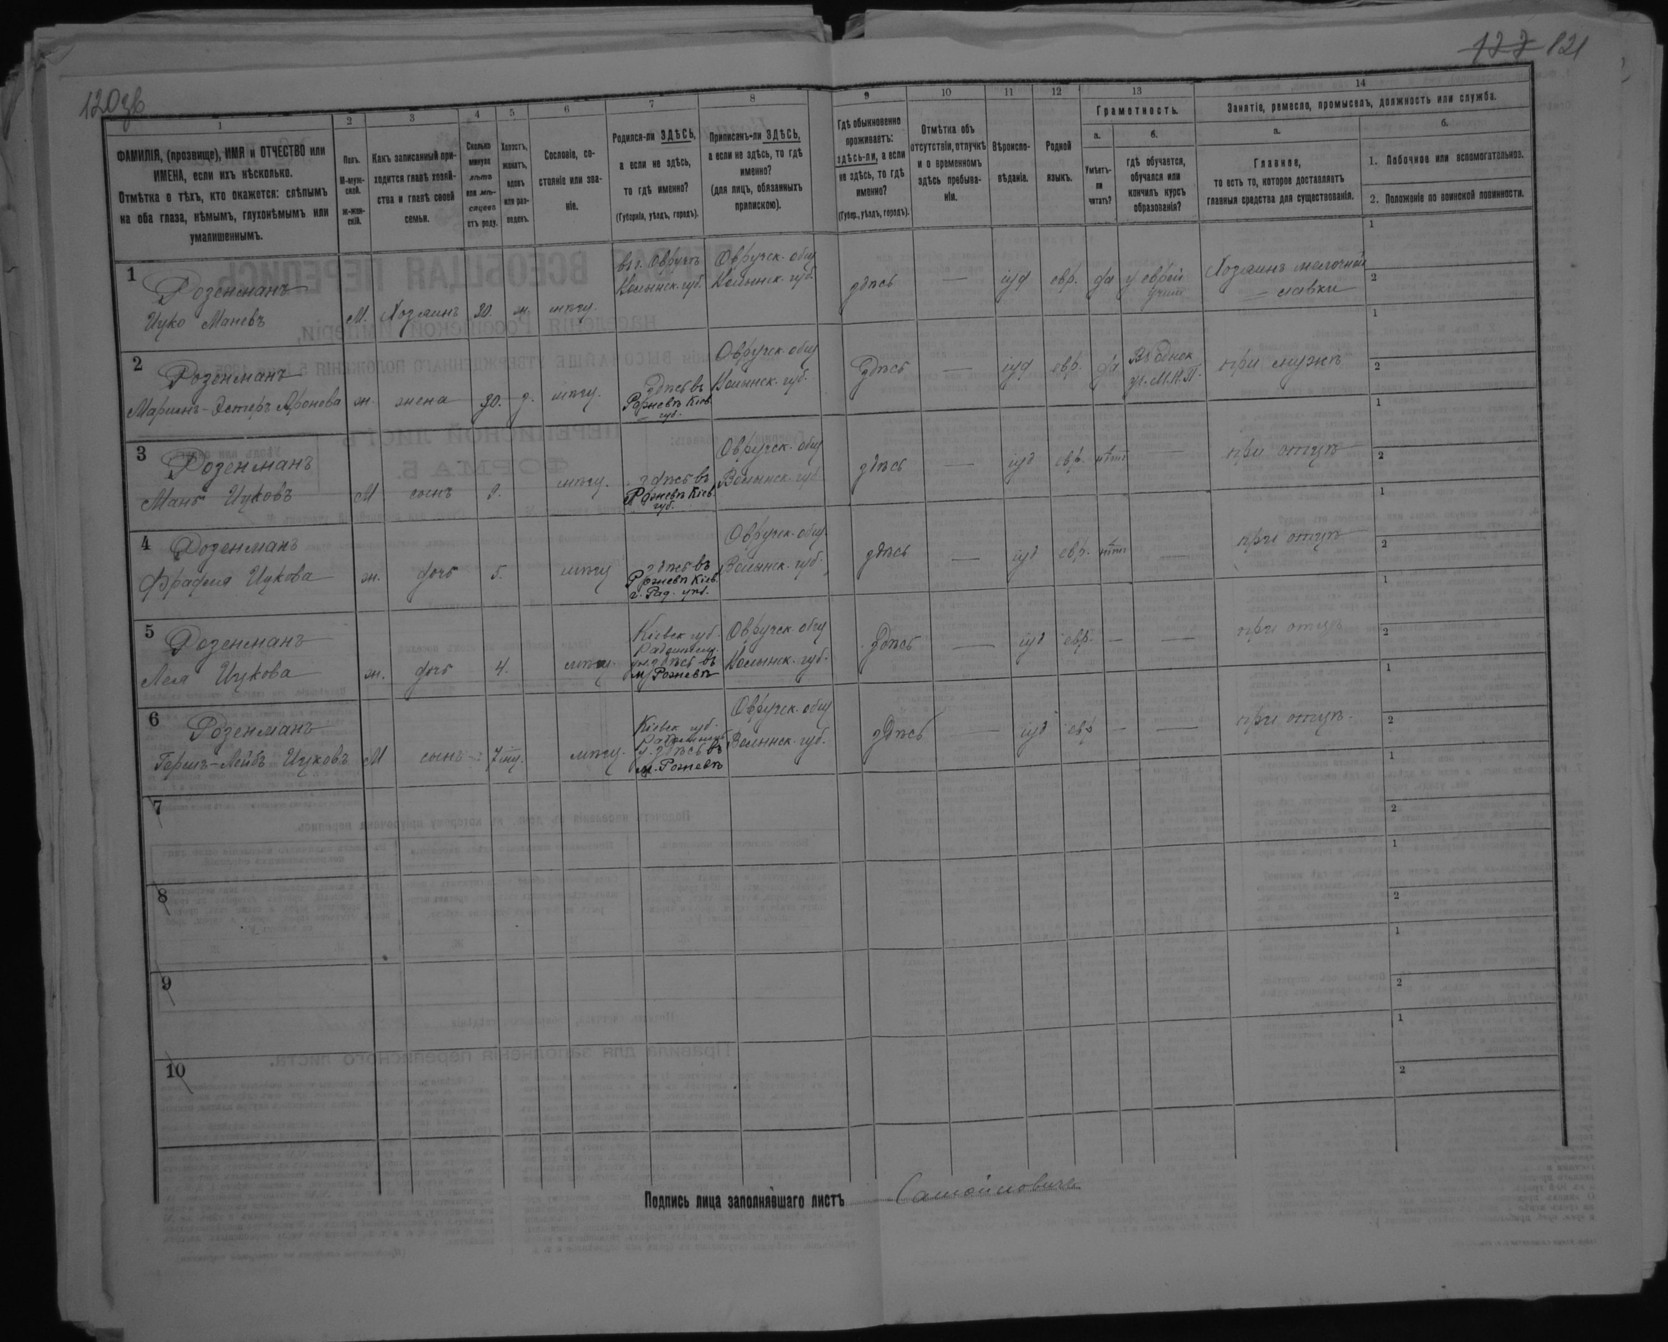 120 зв
121
1
2
3
4
5
6
7
8
9
10
11
12
13
14
ФАМИЛІЯ, (прозвище), ИМЯ и ОТЧЕСТВО или
ИМЕНА, если ихъ нѣсколько.
Отмѣтка о тѣхъ, кто окажется: слѣпымъ
на оба глаза, нѣмымъ, глухонѣмымъ или
умалишеннымъ.
Полъ.
М-муж-
ской.
Ж-жен-
скій.
Какъ записанный при-
ходится главѣ хозяй-
ства и главѣ своей
семьи.
Сколько
минуло
лѣтъ
или мѣ-
сяцевъ
отъ роду.
Холостъ,
женатъ,
вдовъ
или раз-
веденъ.
Сословіе, со-
стояніе или зва-
ніе.
Родился-ли ЗДѢСЬ,
а если не здѣсь,
то гдѣ именно?
(Губернія, уѣздъ, городъ).
Приписанъ-ли ЗДѢСЬ,
а если не здѣсь, то гдѣ
именно?
(для лицъ, обязанныхъ
припискою).
Гдѣ обыкновенно
проживаетъ:
здѣсь-ли, а если
не здѣсь, то гдѣ
именно?
(Губер., уѣздъ, городъ).
Отмѣтка объ
отсутствіи, отлучкѣ
и о временномъ
здѣсь пребыва-
ніи.
Вѣроиспо-
вѣданіе.
Родной
языкъ.
Грамотность.
а.
Умѣетъ-
ли
читать?
б.
гдѣ обучается,
обучался или
кончилъ курсъ
образованія?
Занятіе, ремесло, промыселъ, должность или служба.
а.
Главное,
то есть то, которое доставляетъ
главныя средства для существованія.
б.
1. Побочное или вспомогательное.
2. Положеніе по воинской повинности.
1
Розенманъ
Ицко Маневъ
М.
Хозяинъ
30.
ж.
мѣщ.
въ г. Овручѣ
Волынск. губ.
Овручск. общ
Волынск. губ.
здѣсь
—
іуд
евр.
да
у еврей
учит
Хозяинъ мелочной
лавки
1
2
2
Розенманъ
Марьямъ-Эстеръ Аронова
ж.
жена
30.
мѣщ.
здѣсь въ
Рожневѣ Кіев
губ.
Овручск. общ
Волынск. губ.
здѣсь
—
іуд
евр.
да
уч. М.Н.П.
при мужѣ
1
2
3
Розенманъ
Мань Ицковъ
М
сынъ
9.
мѣщ.
здѣсь въ
Рожневѣ Кіев
губ.
Овручск. общ
Волынск. губ.
здѣсь
—
іуд
евр.
нѣтъ
—
при отцѣ
1
2
4
Розенманъ
Ицкова
ж.
дочь
5.
мѣщ
здѣсь въ
Рожневѣ Кіев
г. Рад. уѣз.
Овручск. общ.
Волынск. губ.
здѣсь
—
іуд
евр.
нѣтъ
—
при отцѣ
1
2
5
Розенманъ
Лея Ицкова
ж.
дочь
4.
мѣщ.
Кіевск губ.
здѣсь въ
м. Рожневѣ
Овручск. общ
Волынск. губ.
здѣсь
—
іуд
евр.
—
—
при отцѣ
1
2
6
Розенманъ
Гершъ-Лейбъ Ицковъ
М
сынъ
7 мц.
мѣщ.
Кіевск губ.
у. здѣсь въ
м. Рожневѣ
Овручск. общ
Волынск. губ.
здѣсь
—
іуд
евр
—
—
при отцѣ.
1
2
7
1
2
8
1
2
9
1
2
10
1
2
Подпись лица заполнявшаго листъ Самойловичъ